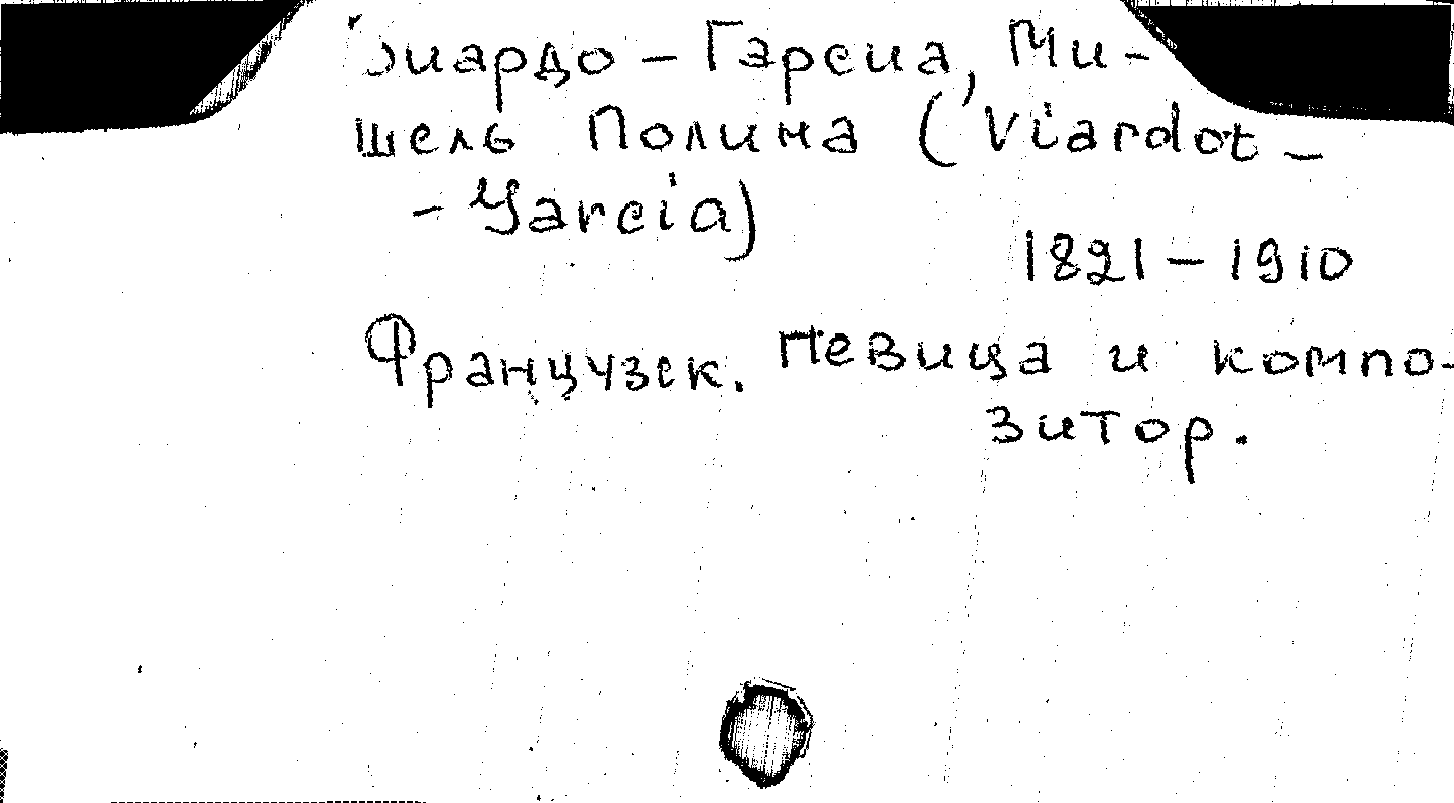 Виардо - Гарсиа, Ми-
шель Полина (Viardot -
- Garcia)
1821 - 1910
Французск. певица и компо-
зитор.